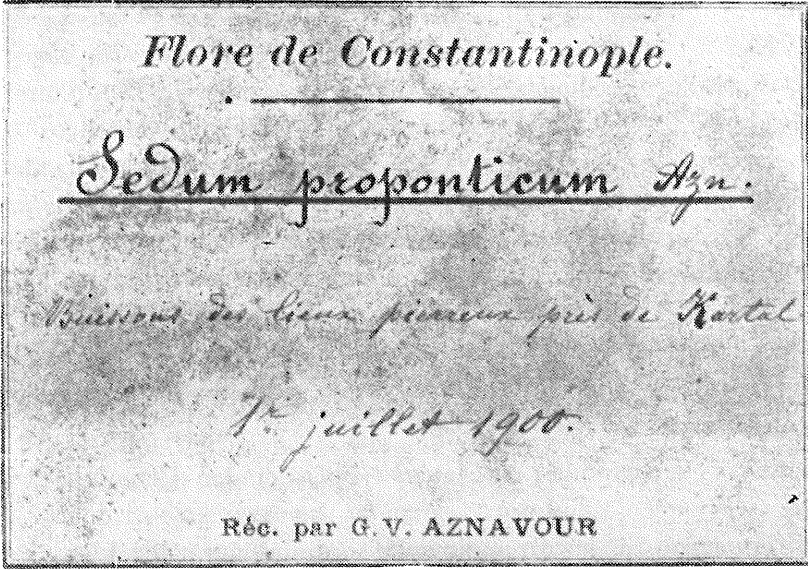 Flore de Constantinople.
Sedum proponticum Azn.
Buissons des lieux pierreux près de Kartal
1r juillet 1900.
Réc. par G. V. AZNAVOUR